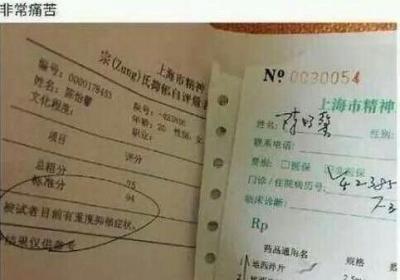 非常痛苦
宗(Zung)氏抑郁自评量表
上海市精神
编号: 0000178455
姓名: 陈怡馨
文化程度:
年龄: 20 性别: 女
职业:
项目 评分
总粗分 75
标准分 94
被试者目前有重度抑郁症状。
结果仅供参考
№ 0030054
上海市精神
姓名: 性别:
联系电话:
费别: □医保
门诊/住院病历号: 42385
临床诊断:
Rp
药品通用名 规格
地西泮片 2.5m